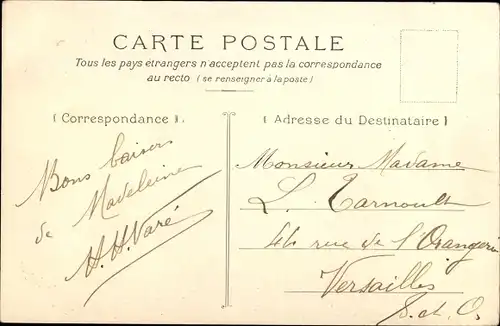 CARTE POSTALE
Tous les pays étrangers n'acceptent pas la correspondance
au recto (se renseigner à la poste)
(Correspondance).
(Adresse du Destinataire)
Bons baisers
de Madeleine
H. H. Varé
Monsieur Madame
L. Tarnoult
46 rue de l'Orangerie
Versailles
S. et. O.